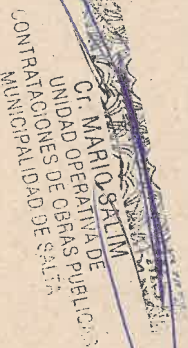 Cr. MARIO SALIM
UNIDAD OPERATIVA DE
CONTRATACIONES DE OBRAS PUBLICAS
MUNICIPALIDAD DE SALTA